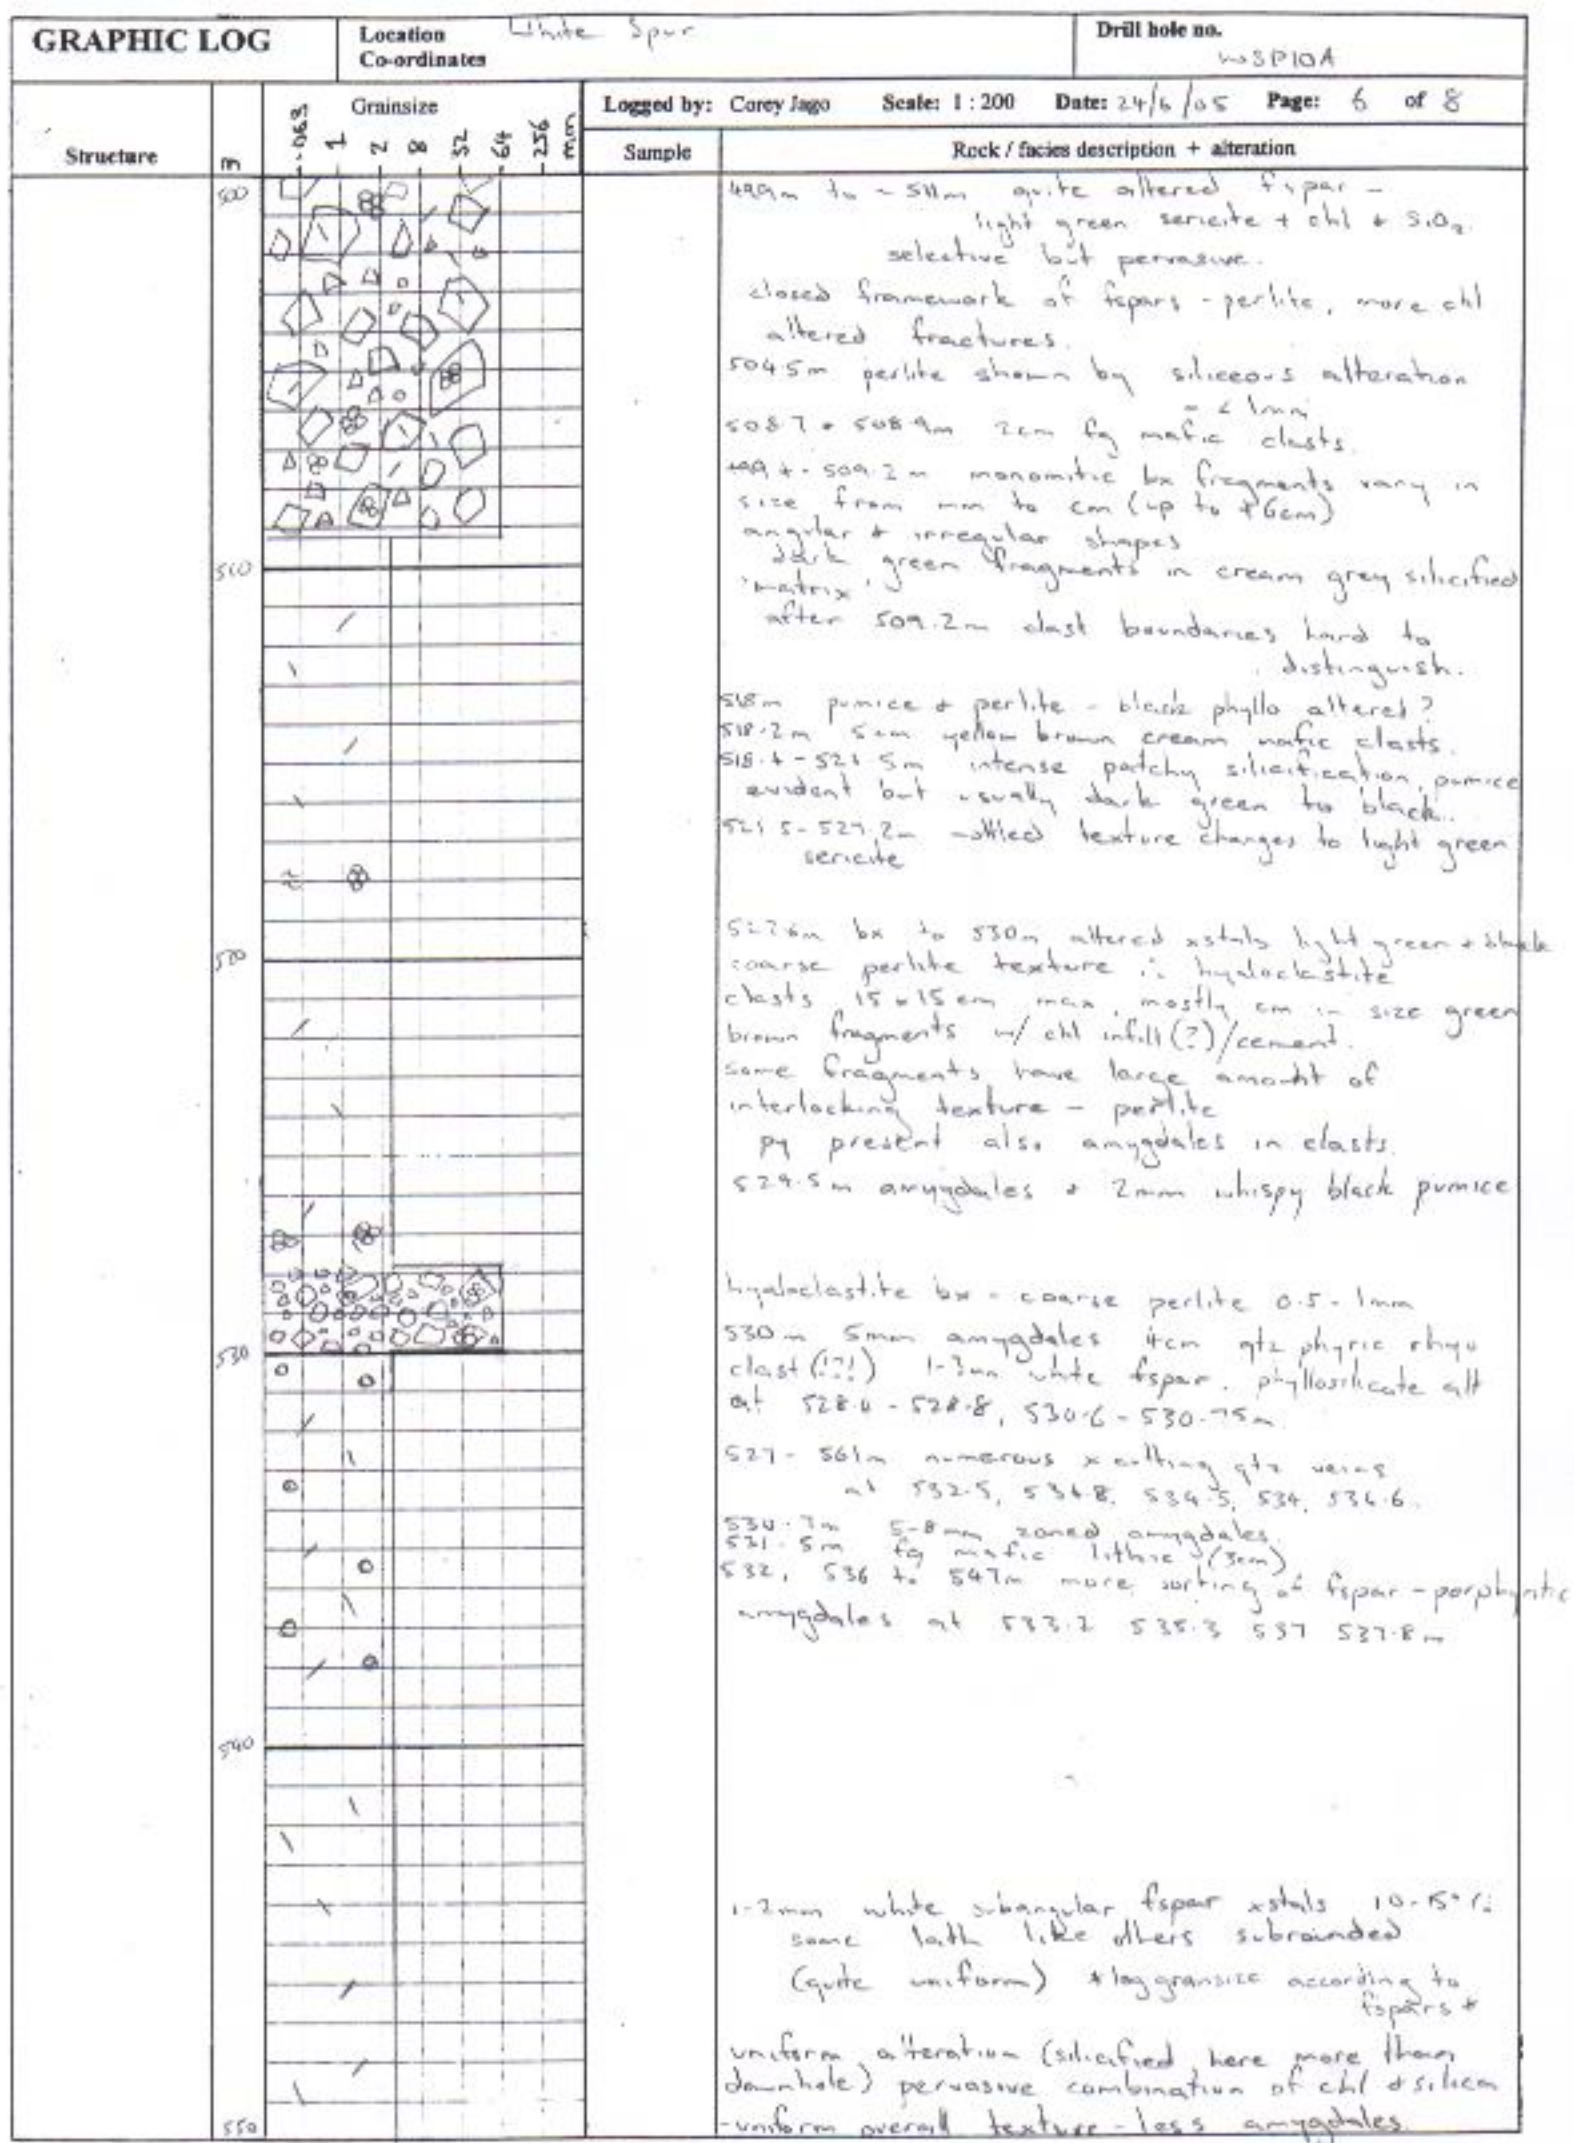 GRAPHIC LOG
Location White Spur
Co-ordinates
Drill hole no.
WSP10A
Structure
m
Grainsize
.063 1 2 8 32 64 256 mm
Logged by: Corey Jago Scale: 1 : 200 Date: 24/6/05 Page: 6 of 8
Sample
Rock / facies description + alteration
500
499m to ~511m quite altered fspar -
light green sericite + chl + SiO2.
selective but pervasive.
closed framework of fspars - perlite, more chl
altered fractures.
504.5m perlite shown by siliceous alteration
~ < 1mm
508.7 + 508.9m 2cm fg mafic clasts.
509.2m monomitic bx fragments vary in
size from mm to cm (up to 6cm)
angular + irregular shapes
dark green fragments in cream grey silicified
'matrix'
510
after 509.2m clast boundaries hard to
distinguish.
518m pumice + perlite - black phyllo altered?
518.2m 5cm yellow brown cream mafic clasts.
518.4 - 521.5m intense patchy silicification, pumice
evident but usually dark green to black.
521.5 - 527.2m mottled texture changes to light green
sericite
520
bx to 530m altered xstals light green + black
coarse perlite texture ∴ hyaloclastite
clasts 15 x 15 cm max, mostly cm in size green
brown fragments w/ chl infill(?)/cement.
some fragments have large amount of
interlocking texture - perlite
py present also amygdales in clasts.
529.5m amygdales + 2mm whispy black pumice
hyaloclastite bx - coarse perlite 0.5 - 1mm
530
530m 5mm amygdales 4cm qtz phyric rhyo
clast (!?!) 1-3mm white fspar. phyllosilicate alt
at 528.0 - 528.8, 530.6 - 530.75m
527 - 561m numerous x cutting qtz veins
at 532.5, 534.5, 534, 536.6.
530.7m 5-8mm zoned amygdales.
531.5m fg mafic lithic (3cm)
532, 536 to 547m more sorting of fspar - porphyritic
amygdales at 533.2 535.3 537 537.8m
540
1-2mm white subangular fspar xstals 10-15%
some lath like others subrounded
(quite uniform) *log gransize according to
fspars*
uniform alteration (silicified here more than
downhole) pervasive combination of chl + silica
- uniform overall texture - less amygdales.
550